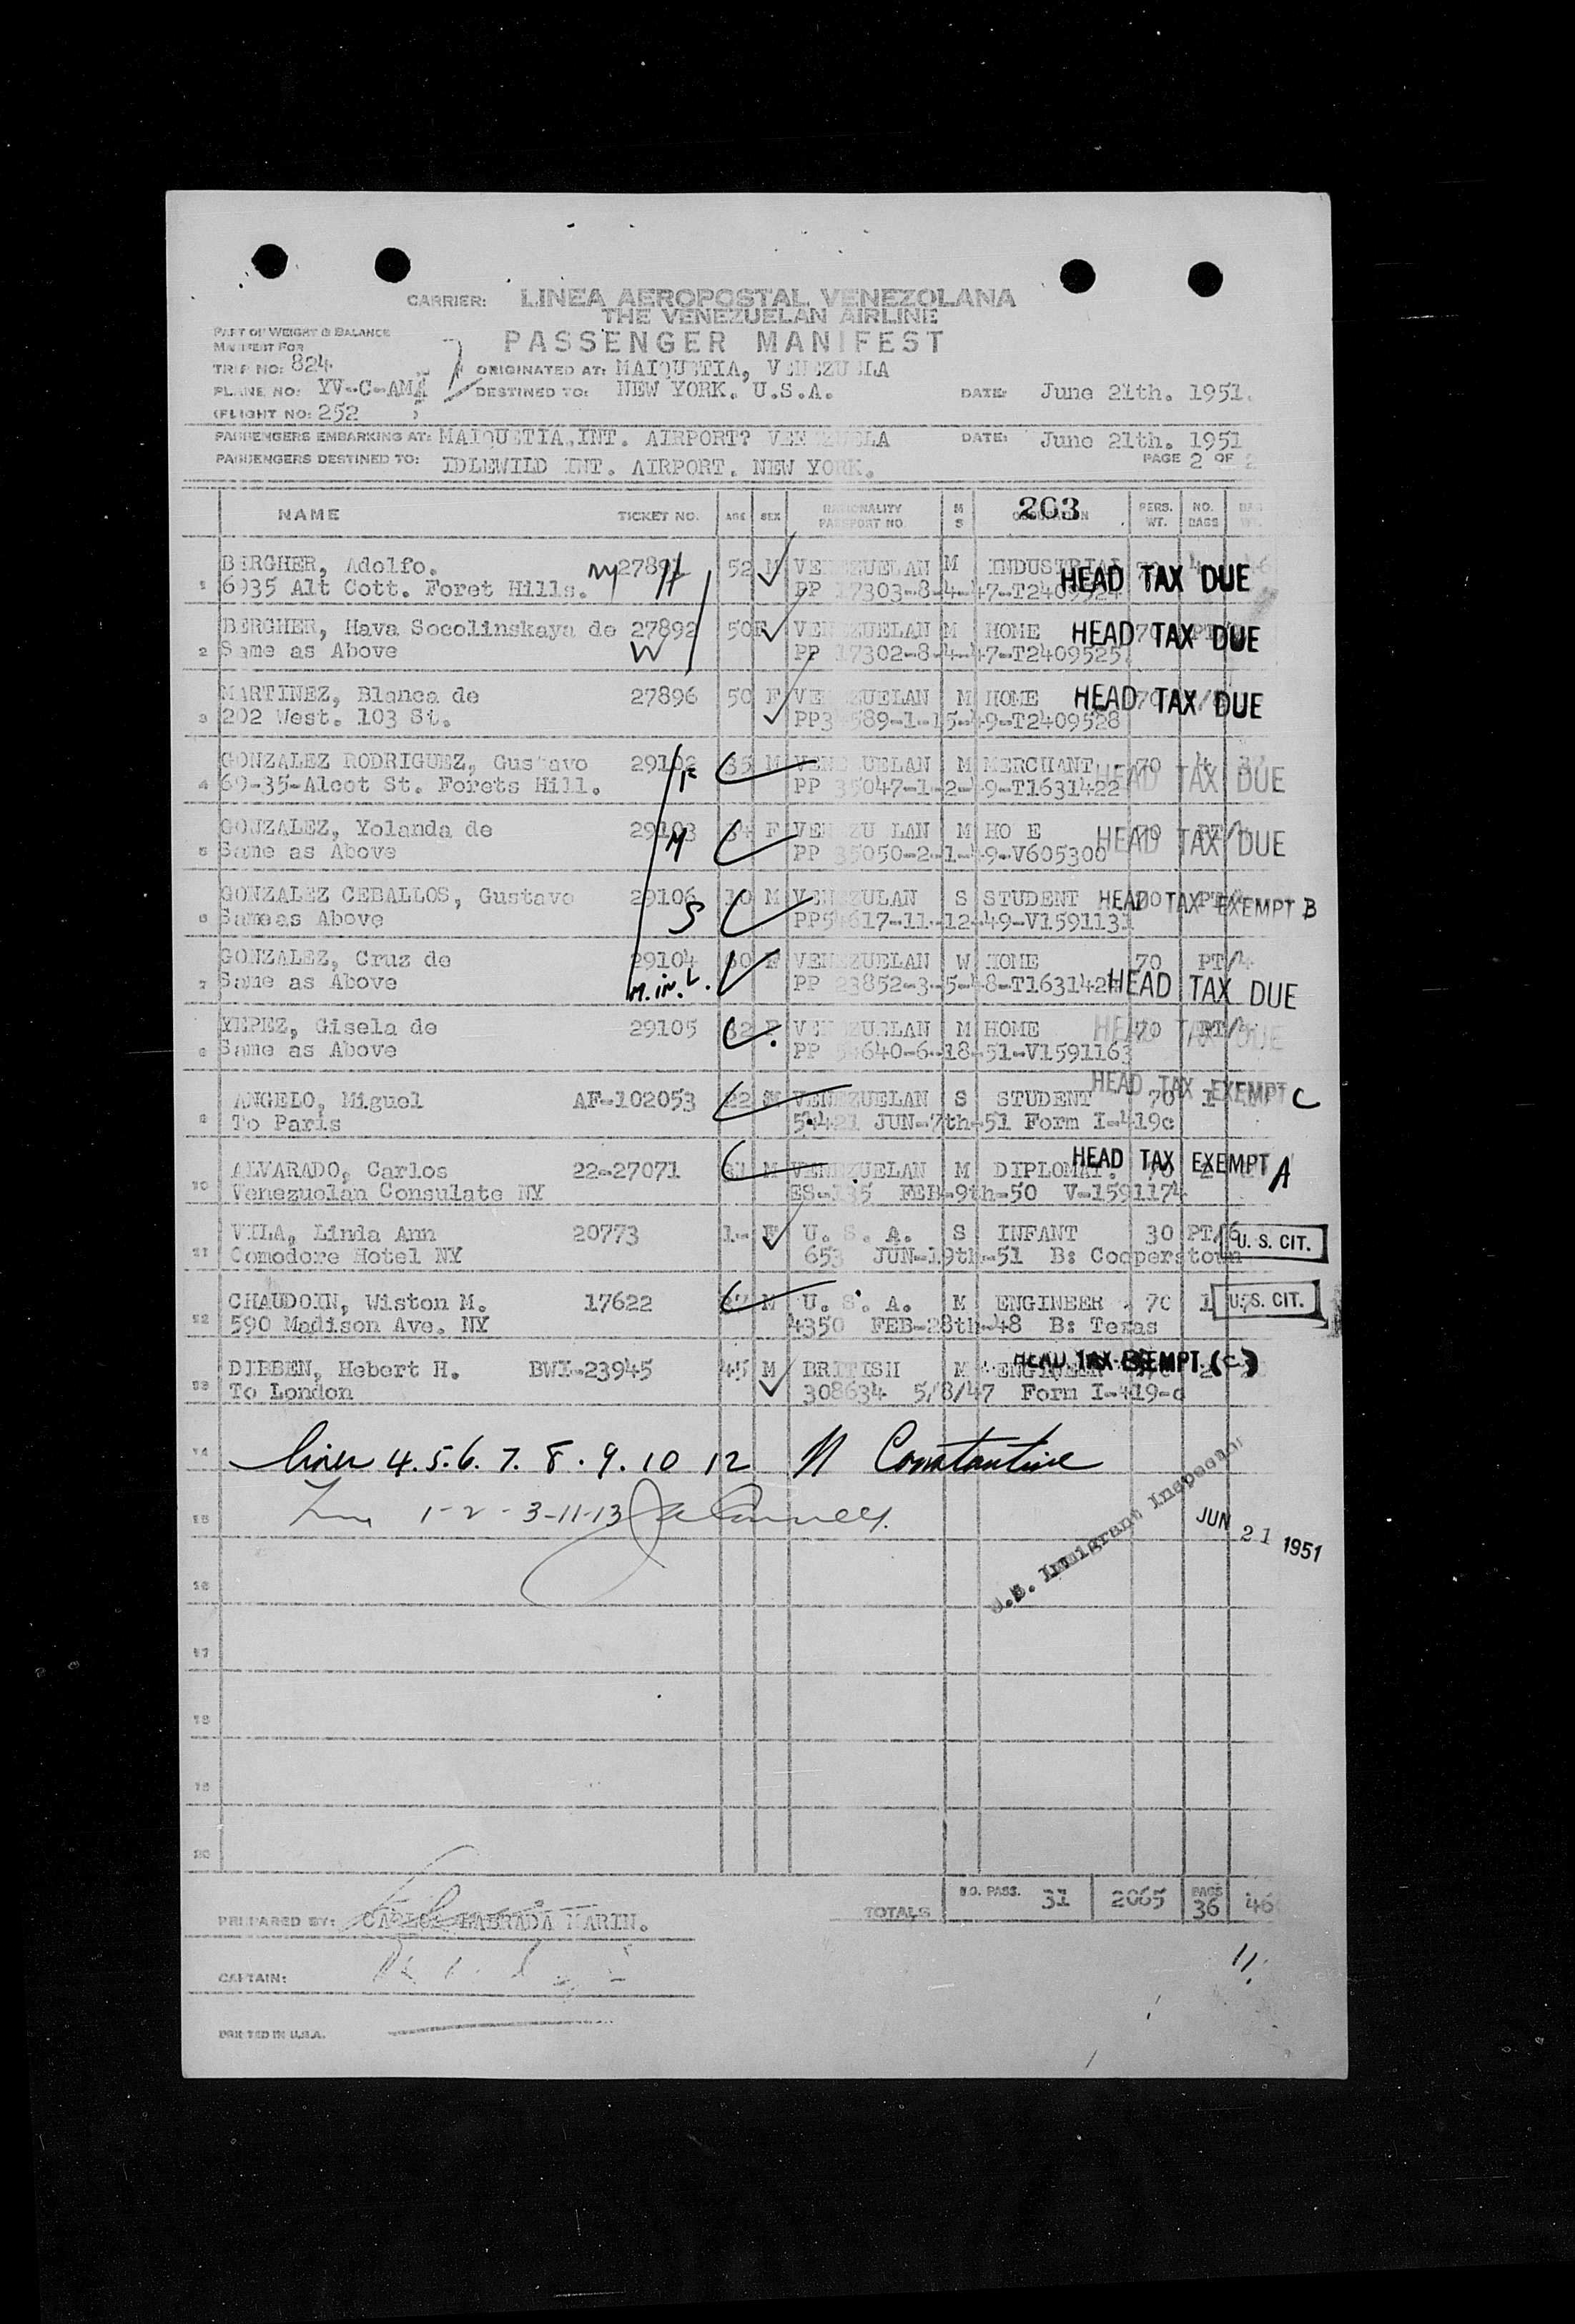 CARRIER: LINEA AEROPOSTAL VENEZOLANA
THE VENEZUELAN AIRLINE
PART OF WEIGHT & BALANCE
MANIFEST FOR
PASSENGER MANIFEST
TRIP NO: 824
ORIGINATED AT: MAIQUETIA, VENEZUELA
PLANE NO: YV-C-AMA
DESTINED TO: NEW YORK. U.S.A.
DATE: June 21th. 1951.
(FLIGHT NO: 252 )
PASSENGERS EMBARKING AT: MAIQUETIA,INT. AIRPORT? VENEZUELA
DATE: June 21th. 1951
PAGE 2 OF 2
PASSENGERS DESTINED TO: IDLEWILD INT. AIRPORT. NEW YORK.
NAME TICKET NO. AGE SEX NATIONALITY PASSPORT NO. M S 263 PERS. WT. NO. BAGS
1 BERGHER, Adolfo. NY H 52 M VENEZUELAN M INDUSTRIAL HEAD TAX DUE
6935 Alt Cott. Foret Hills. PP 17303-8-4-47-T2409524
BERGHER, Hava Socolinskaya de 27892 50 F VENEZUELAN M HOME 70 HEAD TAX DUE
2 Same as Above W PP 17302-8-4-47-T2409525
MARTINEZ, Blanca de 27896 50 F VENEZUELAN M HOME 70 HEAD TAX DUE
3 202 West. 103 St. 589-1-15-49-T2409528
GONZALEZ RODRIGUEZ, Gustavo 29102 35 M VENEZUELAN M MERCHANT 70 4
4 69-35-Alcot St. Forets Hill. F PP 35047-1-2-49-T1631422 HEAD TAX DUE
GONZALEZ, Yolanda de 29103 34 F M HO E 70 PT/4
5 Same as Above M PP 35050-2-1-49-V605300 HEAD TAX DUE
GONZALEZ CEBALLOS, Gustavo 29106 10 M S STUDENT HEAD TAX EXEMPT B
6 Sameas Above S 617-11-12-49-V1591131
GONZALEZ, Cruz de 29104 60 F VENEZUELAN W HOME 70 PT/4
7 Same as Above M. in. L. PP 23852-3-5-48- HEAD TAX DUE
YEPEZ, Gisela de 29105 32 F VENEZUELAN M HOME 70 PT/4 HEAD TAX DUE
8 Same as Above PP 640-6-18-51-V1591163
ANGELO, Miguel AF-102053 22 M VENEZUELAN S STUDENT 70 1 HEAD TAX EXEMPT C
9 To Paris JUN-7th-51 Form I-419c
ALVARADO, Carlos 22-27071 31 M VENEZUELAN M DIPLOMAT. 70 HEAD TAX EXEMPT A
10 Venezuelan Consulate NY ES-135 FEB-9th-50 V-1591174
VILA, Linda Ann 20773 1- F U. S. A. S INFANT 30 PT/6 U. S. CIT.
11 Comodore Hotel NY 653 JUN-19th-51 B: Cooperstown
CHAUDOIN, Wiston M. 17622 37 M U. S. A. M ENGINEER 70 1 U. S. CIT.
12 590 Madison Ave. NY 4350 FEB-28th-48 B: Texas
DIBBEN, Hebert H. BWI-23945 45 M BRITISH M ENGINEER 2 HEAD TAX EXEMPT (C)
13 To London 308634 5/8/47 Form I-419-c
14 Lines 4.5.6.7.8.9.10 12 N Constantine
15 1-2-3-11-13
U.S. Immigrant Inspector
JUN 21 1951
16
17
18
19
20
TOTALS NO. PASS. 31 2065 BAGS 36
PREPARED BY: CARLOS LABRADA MARIN.
CAPTAIN:
PRINTED IN U.S.A.